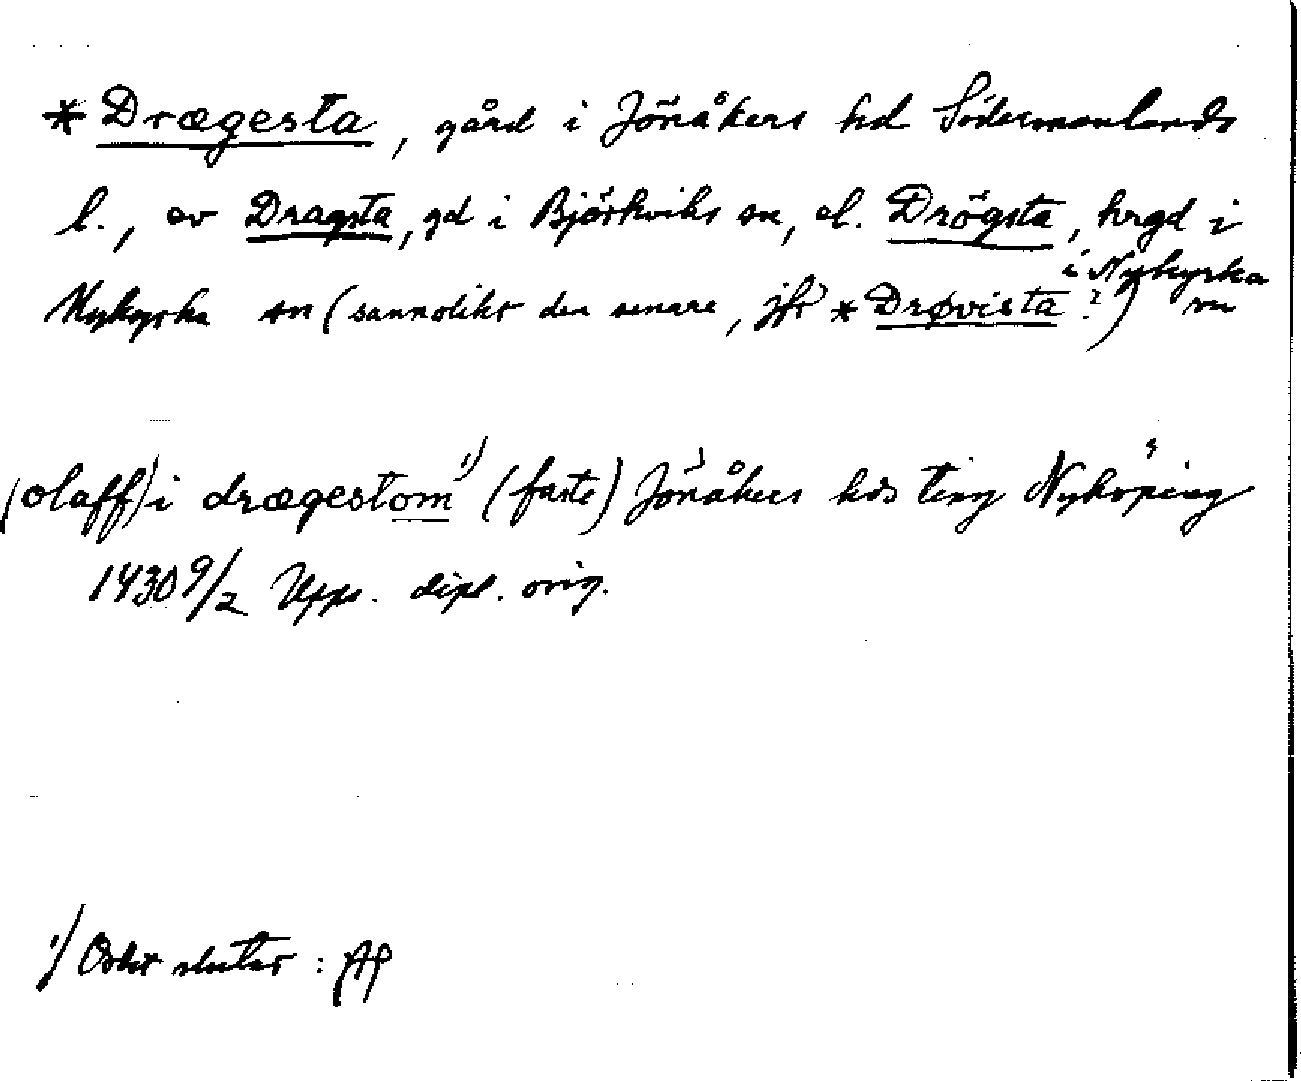 *Drægesta, gård i Jönåkers hd Södermanlands
l., av Dragsta, gd i Björkviks sn, el. Drögsta, hrgd i
Nykyrka sn (sannolikt den senare, jfr *Drøvista ?) i Nykyrka sn
(olaff) i drægestom 1) (faste) Jönåkers hds ting Nyköping
1430 9/2 Upps. dipl. orig.
1) Ordet slutar :